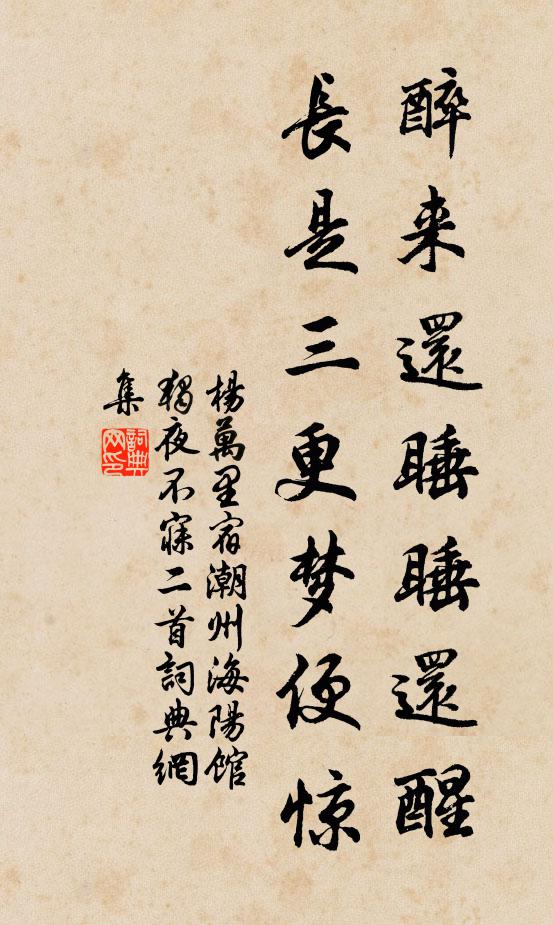 醉来還睡睡還醒
長是三更梦便惊
楊萬里宿潮州海陽館
獨夜不寐二首詞典網
集
詞典
网印